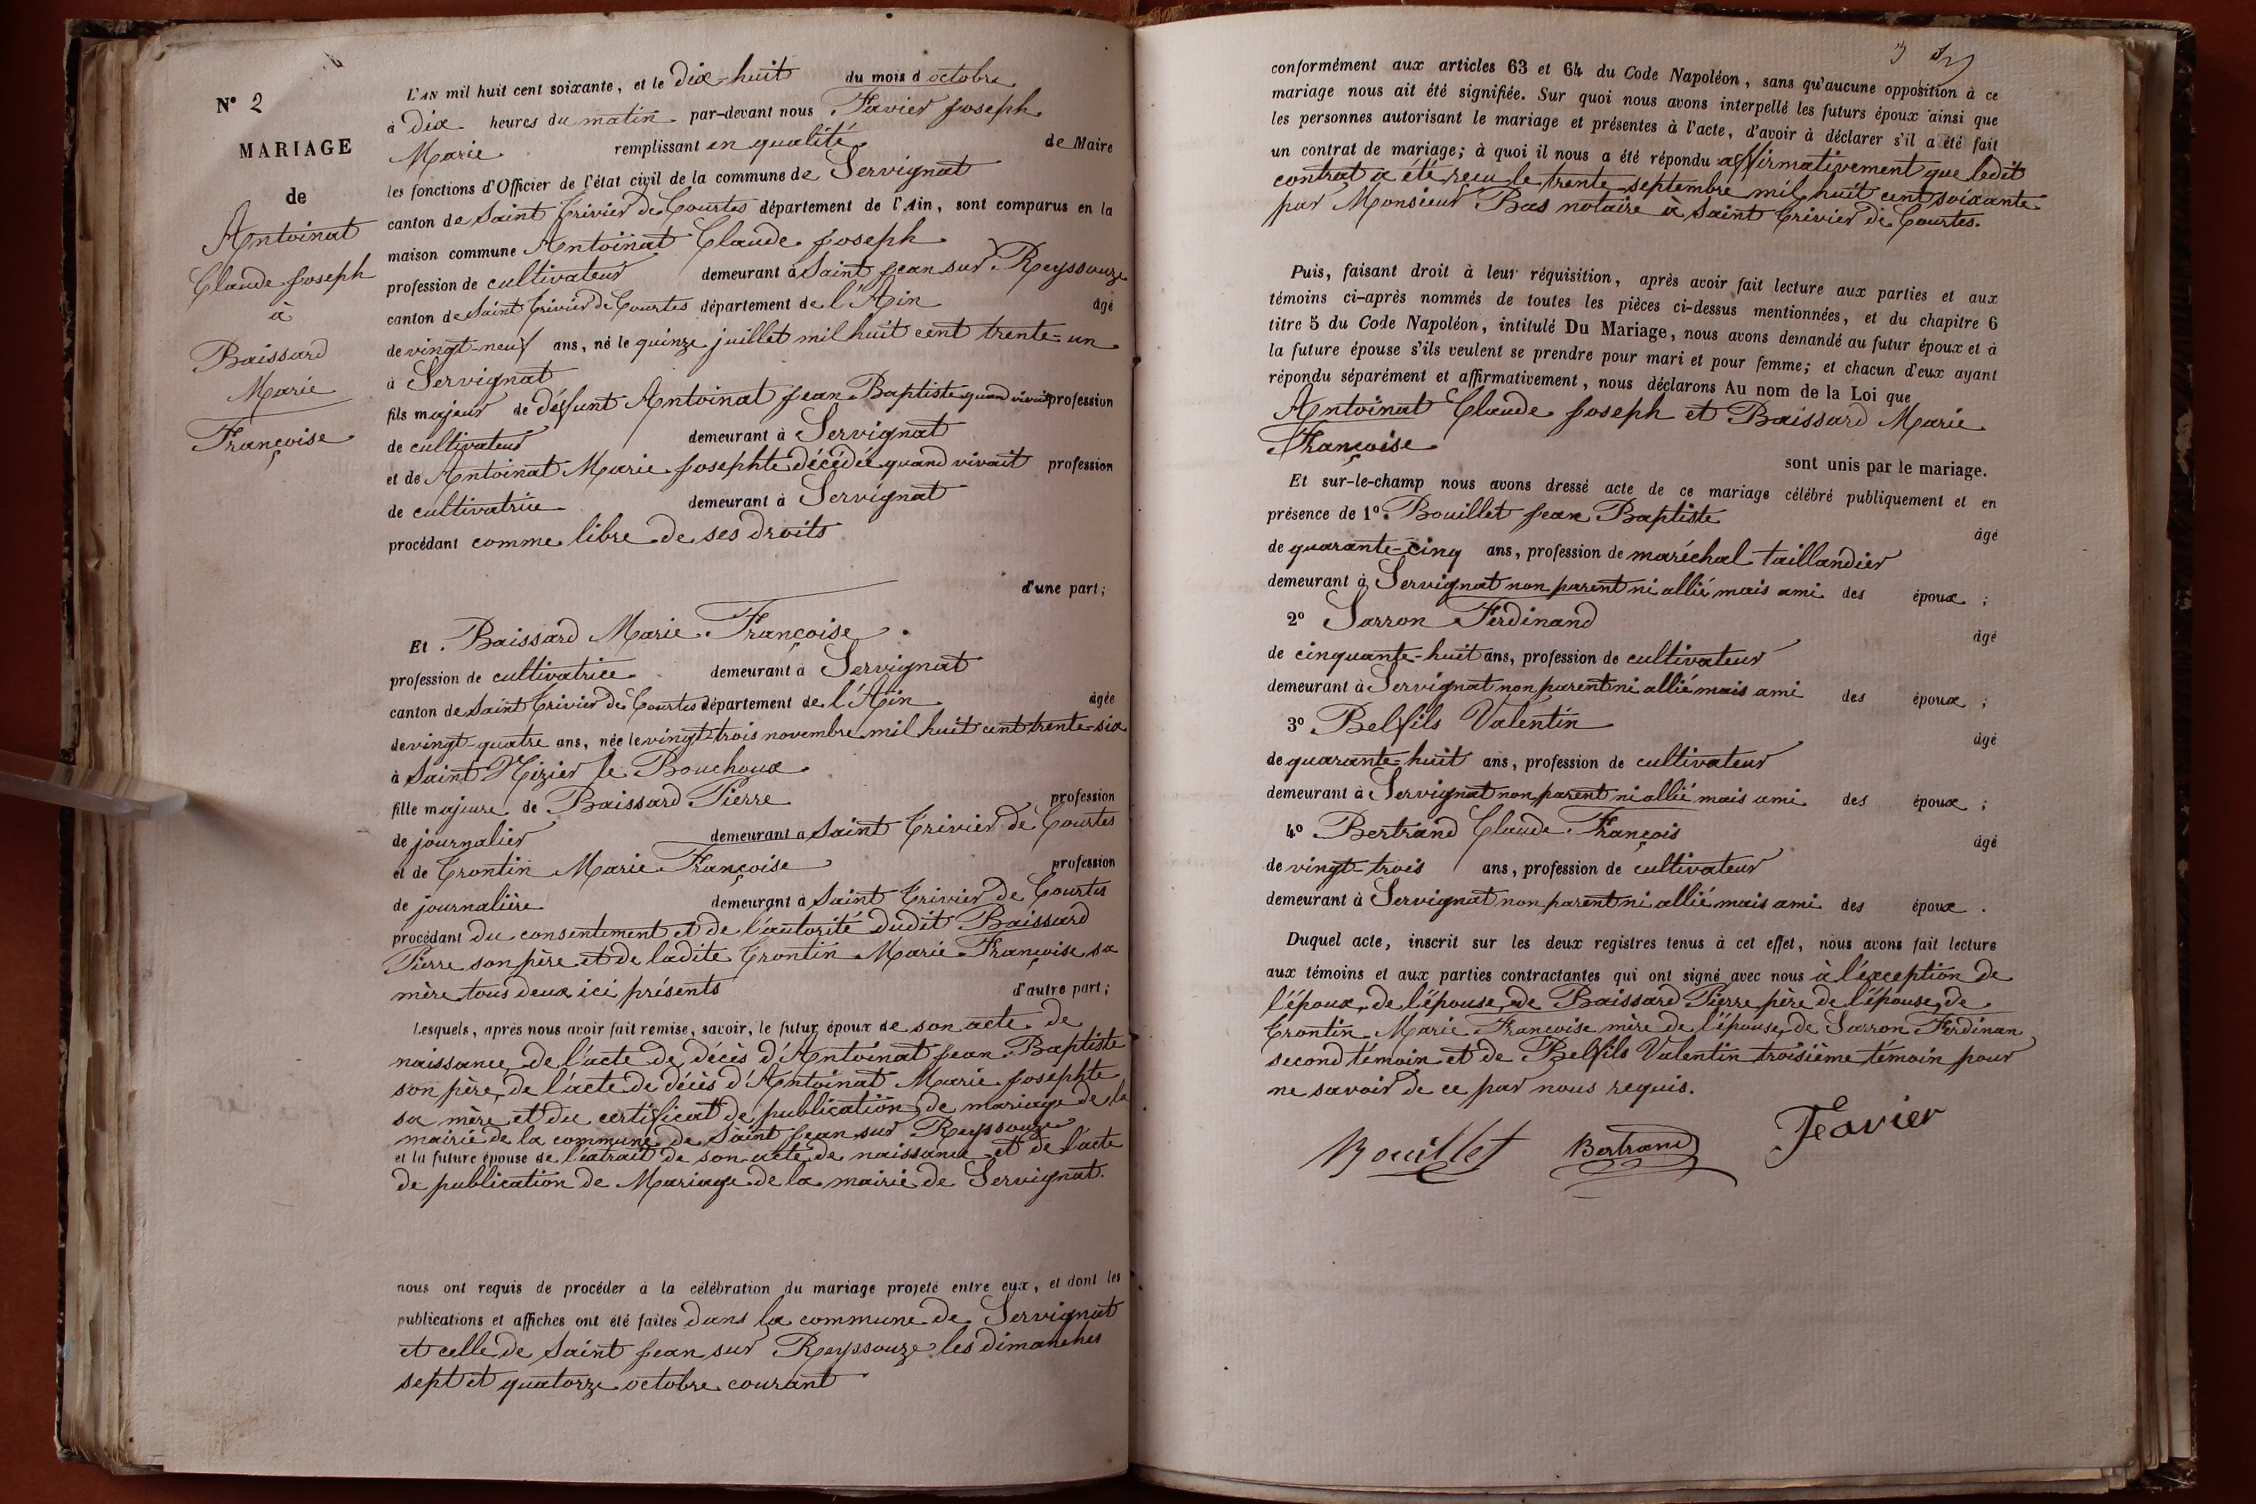 N° 2
MARIAGE
de
Antoinat
Claude Joseph
à
Baissard
Marie
Françoise
L'AN mil huit cent soixante, et le dix-huit du mois d octobre
à dix heures du matin par-devant nous Favier Joseph
Marie remplissant en qualité de Maire
les fonctions d'Officier de l'état civil de la commune de Servignat
canton de Saint Trivier de Courtes département de l'Ain, sont comparus en la
maison commune Antoinat Claude Joseph
profession de cultivateur demeurant à Saint Jean sur Reyssouze
canton de Saint Trivier de Courtes département de l'Ain âgé
de vingt-neuf ans, né le quinze juillet mil huit cent trente-un
à Servignat
fils majeur de défunt Antoinat Jean Baptiste quand vivait profession
de cultivateur demeurant à Servignat
et de Antoinat Marie Josephte décédée quand vivait profession
de cultivatrice demeurant à Servignat
procédant comme libre de ses droits
d'une part;
Et Baissard Marie Françoise
profession de cultivatrice demeurant à Servignat
canton de Saint Trivier de Courtes département de l'Ain âgée
de vingt-quatre ans, née le vingt-trois novembre mil huit cent trente-six
à Saint Nizier le Bouchoux
fille majeure de Baissard Pierre profession
de journalier demeurant à Saint Trivier de Courtes
et de Trontin Marie Françoise profession
de journalière demeurant à Saint Trivier de Courtes
procédant du consentement et de l'autorité dudit Baissard
Pierre son père et de ladite Trontin Marie Françoise sa
mère tous deux ici présents d'autre part;
Lesquels, après nous avoir fait remise, savoir, le futur époux de son acte de
naissance, de l'acte de décès d'Antoinat Jean Baptiste
son père, de l'acte de décès d'Antoinat Marie Josephte
sa mère et du certificat de publication de mariage de la
mairie de la commune de Saint Jean sur Reyssouze
et la future épouse de l'extrait de son acte de naissance et de l'acte
de publication de Mariage de la mairie de Servignat.
nous ont requis de procéder à la célébration du mariage projeté entre eux, et dont les
publications et affiches ont été faites dans la commune de Servignat
et celle de Saint Jean sur Reyssouze les dimanches
sept et quatorze octobre courant
3
conformément aux articles 63 et 64 du Code Napoléon, sans qu'aucune opposition à ce
mariage nous ait été signifiée. Sur quoi nous avons interpellé les futurs époux ainsi que
les personnes autorisant le mariage et présentes à l'acte, d'avoir à déclarer s'il a été fait
un contrat de mariage; à quoi il nous a été répondu affirmativement que ledit
contrat a été reçu le trente septembre mil huit cent soixante
par Monsieur Bas notaire à Saint Trivier de Courtes.
Puis, faisant droit à leur réquisition, après avoir fait lecture aux parties et aux
témoins ci-après nommés de toutes les pièces ci-dessus mentionnées, et du chapitre 6
titre 5 du Code Napoléon, intitulé Du Mariage, nous avons demandé au futur époux et à
la future épouse s'ils veulent se prendre pour mari et pour femme; et chacun d'eux ayant
répondu séparément et affirmativement, nous déclarons Au nom de la Loi que
Antoinat Claude Joseph et Baissard Marie
Françoise
sont unis par le mariage.
Et sur-le-champ nous avons dressé acte de ce mariage célébré publiquement et en
présence de 1° Bouillet Jean Baptiste âgé
de quarante-cinq ans, profession de maréchal taillandier
demeurant à Servignat non parent ni allié mais ami des époux ;
2° Sarron Ferdinand âgé
de cinquante-huit ans, profession de cultivateur
demeurant à Servignat non parent ni allié mais ami des époux ;
3° Belfils Valentin âgé
de quarante-huit ans, profession de cultivateur
demeurant à Servignat non parent ni allié mais ami des époux ;
4° Bertrand Claude François âgé
de vingt-trois ans, profession de cultivateur
demeurant à Servignat non parent ni allié mais ami des époux .
Duquel acte, inscrit sur les deux registres tenus à cet effet, nous avons fait lecture
aux témoins et aux parties contractantes qui ont signé avec nous à l'exception de
l'époux, de l'épouse, de Baissard Pierre père de l'épouse, de
Trontin Marie Françoise mère de l'épouse, de Sarron Ferdinan
second témoin et de Belfils Valentin troisième témoin pour
ne savoir de ce par nous requis.
Bouillet Bertrand Favier